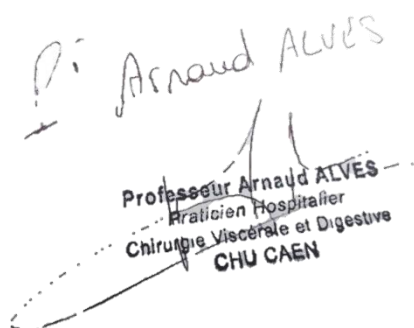 Pr Arnaud ALVES
Professeur Arnaud ALVES
Praticien Hospitalier
Chirurgie Viscérale et Digestive
CHU CAEN